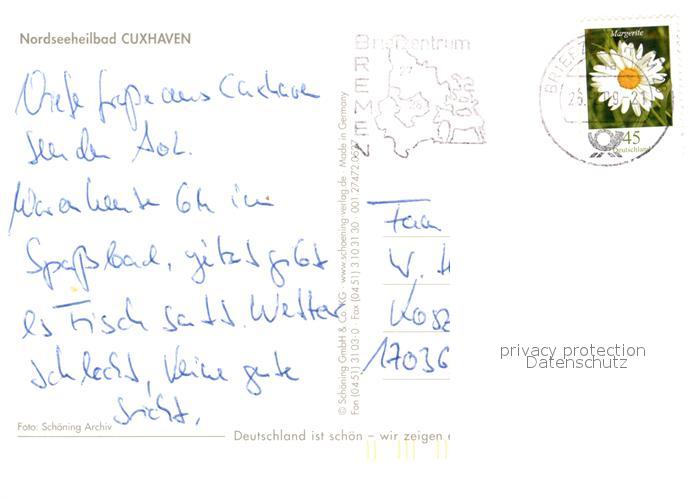 Nordseeheilbad CUXHAVEN
Viele Grüße aus Cuxhaven
senden
Waren heute 6h im
Spaßbad, jetzt gibt
es Fisch satt. Wetter
schlecht, keine gute
Sicht.
Foto: Schöning Archiv
© Schöning GmbH & Co. KG · www.schoening-verlag.de · Made in Germany
Fon (0451) 31 03-0 · Fax (04 51) 3 10 31 30
Deutschland ist schön – wir zeigen e
Briefzentrum
BREMEN
27
28
BRIEFZ
Margerite
45
Deutschland
Frau
W. H
Kosz
17036
privacy protection
Datenschutz